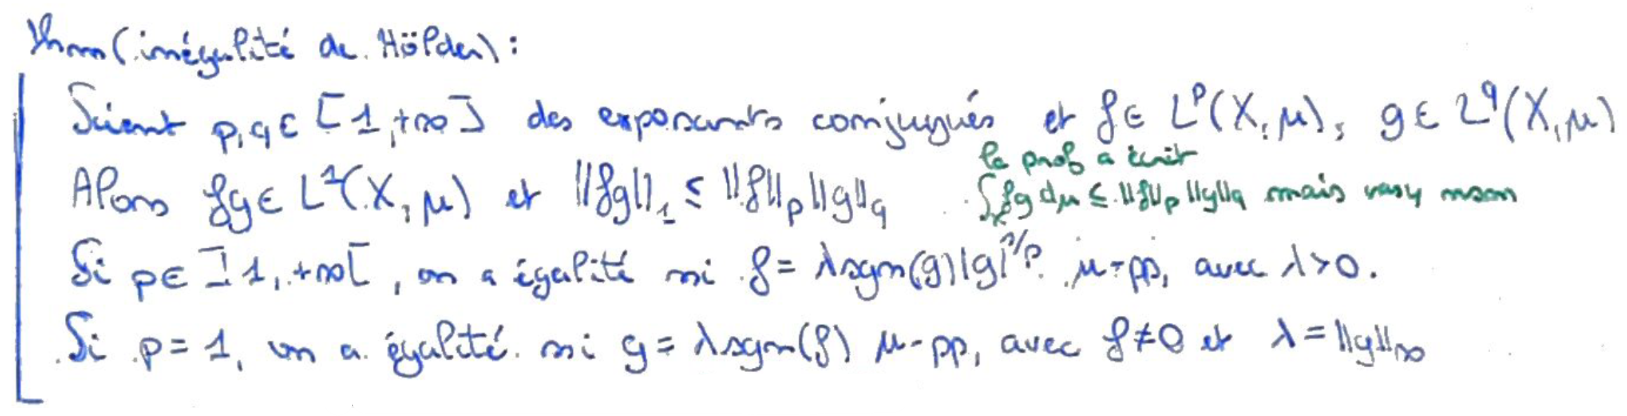 Thm (inégalité de Hölder) :
Soient p,q ∈ [1,+∞] des exposants conjugués et f ∈ L^p(X,μ), g ∈ L^q(X,μ)
le prof a écrit
Alors fg ∈ L^1(X,μ) et ||fg||_1 ≤ ||f||_p ||g||_q
∫_X fg dμ ≤ ||f||_p ||g||_q mais vasy nson
Si p ∈ ]1,+∞[, on a égalité ssi f = λsgn(g)|g|^{q/p} μ-pp, avec λ>0.
Si p=1, on a égalité ssi g = λsgn(f) μ-pp, avec f≠0 et λ = ||g||_∞